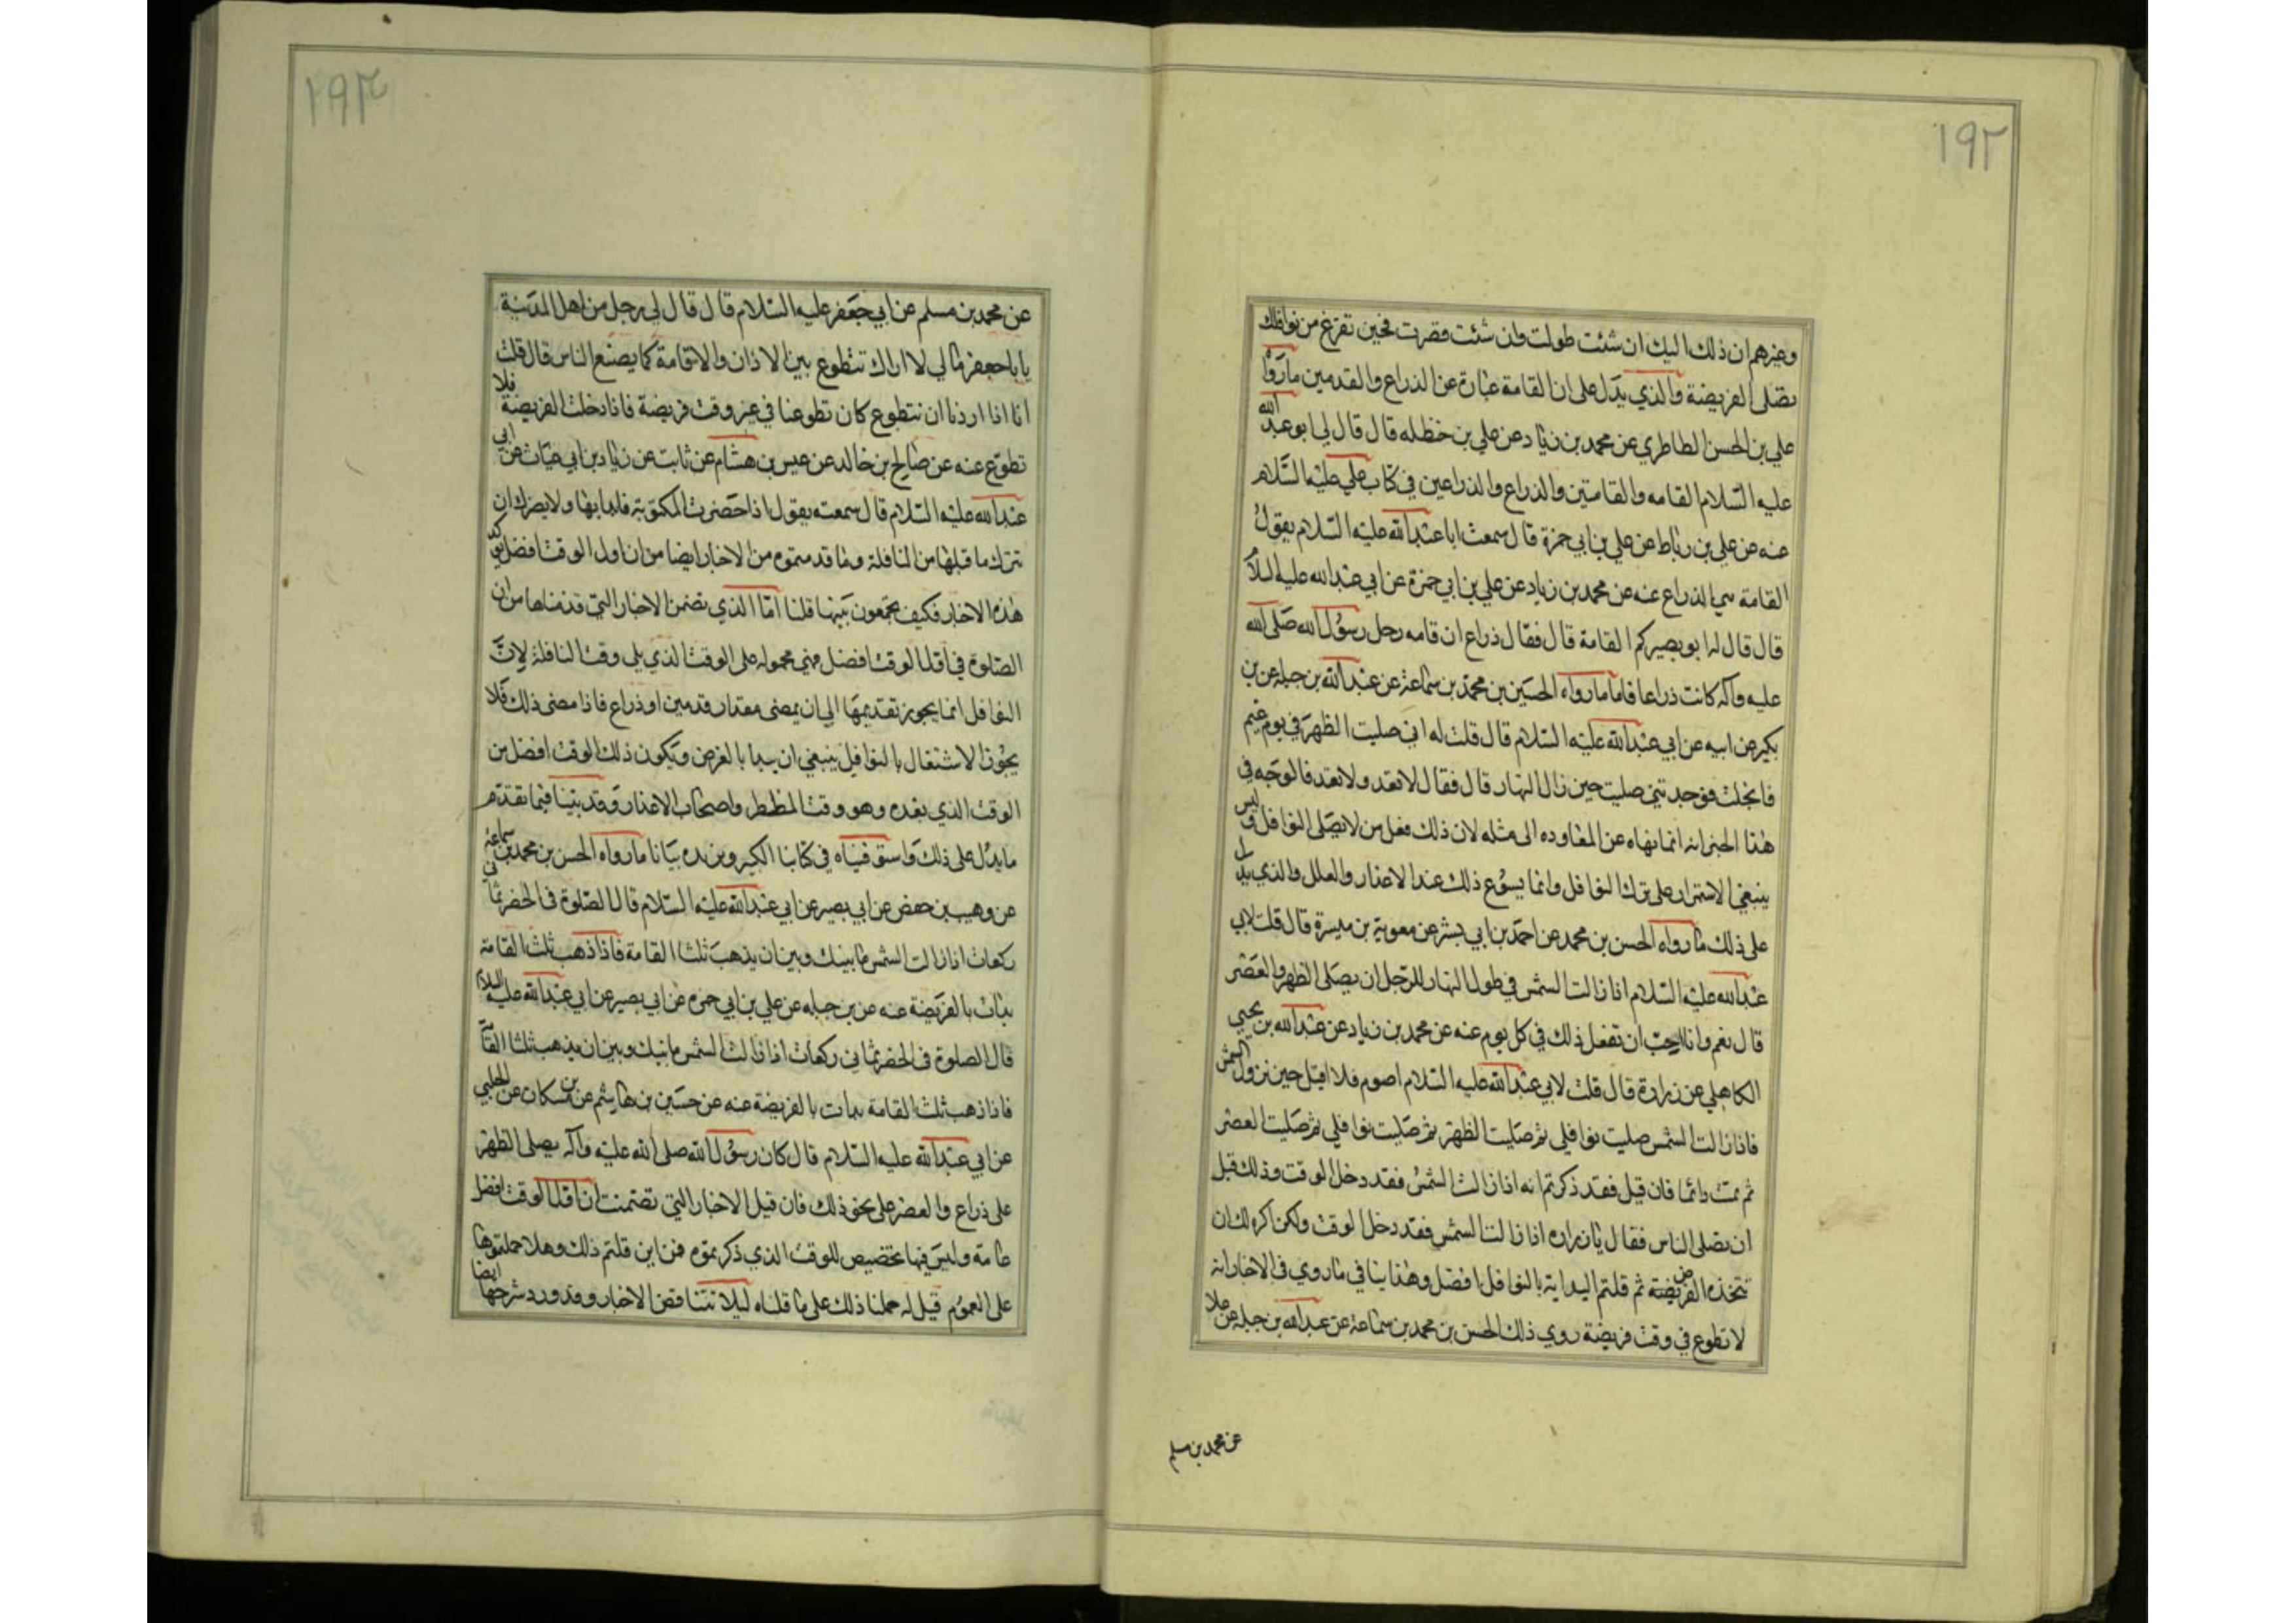 ١٩٢
وغيرهم ان ذلك اليك ان شئت طولت وان شئت قصرت فحين تفرغ من نوافلك
تصلى الفريضة والذي يدل على ان القامة عبارة عن الذراع والقدمين ما رواه
علي بن الحسن الطاطري عن محمد بن زياد عن علي بن حنظله قال قال لي ابو عبد الله
عليه السلام القامه والقامتين والذراع والذراعين في كتاب علي عليه السلام
عنه عن علي بن رباط عن علي بن ابي حمزة قال سمعت ابا عبد الله عليه السلام يقول
القامة هي الذراع عنه عن محمد بن زياد عن علي بن ابي حمزة عن ابي عبد الله عليه السلا
قال قال له ابو بصير كم القامة قال فقال ذراع ان قامه رحل رسول الله صلى الله
عليه وآله كانت ذراعا فاما ما رواه الحسين بن محمد بن سماعة عن عبد الله بن جبله عن بن
بكير عن ابيه عن ابي عبد الله عليه السلام قال قلت له اني صليت الظهر في يوم غيم
فانجلت فوجدتني صليت حين زال النهار قال فقال لا تعد ولا تعد فالوجه في
هذا الخبر انه انما نهاه عن المعاوده الى مثله لان ذلك فعل من لا يصلى النوافل وليس
ينبغي الاستمرار على ترك النوافل وانما يسوع ذلك عند الاعذار والعلل والذي يدل
على ذلك ما رواه الحسن بن محمد عن احمد بن ابي بشر عن معوية بن ميسرة قال قلت لابي
عبد الله عليه السلام اذا زالت الشمس في طول النهار للرجل ان يصلى الظهر والعصر
قال نعم وانا احب ان تفعل ذلك في كل يوم عنه عن محمد بن زياد عن عبد الله بن يحيي
الكاهلي عن زرارة قال قلت لابي عبد الله عليه السلام اصوم فلا اقيل حين تزول الشمس
فاذا زالت الشمس صليت نوافلي ثم صليت الظهر ثم صليت نوافلي ثم صليت العصر
ثم نمت دائما فان قيل فقد ذكرتم انه اذا زالت الشمس فقد دخل الوقت وذلك قبل
ان تصلى الناس فقال يا زراره اذا زالت الشمس فقد دخل الوقت ولكن اكره لك ان
تتخذه الفريضة ثم قلتم البداية بالنوافل افضل وهذا ينافي ما روي في الاخبار انه
لا تطوع في وقت فريضة روي ذلك الحسن بن محمد بن سماعة عن عبد الله بن جبله عن علا
عن محمد بن مسلم
١٩٣
عن محمد بن مسلم عن ابي جعفر عليه السلام قال قال لي رجل من اهل المدينة
يا با جعفر مالي لا اراك تتطوع بين الاذان والاقامة كما يصنع الناس قال قلت
انا اذا اردنا ان نتطوع كان تطوعنا في غير وقت فريضة فاذا دخلت الفريضة فلا
تطوع عنه عن صالح بن خالد عن عيس بن هشام عن ثابت عن زياد بن ابي غياث عن ابي
عبد الله عليه السلام قال سمعته يقول اذا حضرت المكتوبة فابدا بها ولا يضرك ان
تترك ما قبلها من النافلة وما قدمتموه من الاخبار ايضا من ان اول الوقت افضل يؤكد
هذه الاخبار فكيف تجمعون بينها قلنا اما الذي تضمن الاخبار التي قدمناها من ان
الصلوة في اول الوقت افضل فهي محموله على الوقت الذي يلي وقت النافلة لان
النوافل انما يجوز تقديمها الى ان يمضى مقدار قدمين او ذراع فاذا مضى ذلك فلا
يجوز الاشتغال بالنوافل ينبغي ان يبدا بالفرض ويكون ذلك الوقت افضل من
الوقت الذي بعده وهو وقت المضطر واصحاب الاعذار وقد بينا فيما تقدم
ما يدل على ذلك واستوفيناه في كتابنا الكبير ويزيده بيانا ما رواه الحسن بن محمد بن سماعة
عن وهيب بن حفص عن ابي بصير عن ابي عبد الله عليه السلام قال الصلوة في الحضر ثماني
ركعات اذا زالت الشمس ما بينك وبين ان يذهب ثلثا القامة فاذا ذهب ثلث القامة
بدات بالفريضة عنه عن بن جبله عن علي بن ابي حمزه عن ابي بصير عن ابي عبد الله عليه السلام
قال الصلوة في الحضر ثماني ركعات اذا زالت الشمس ما بينك وبين ان يذهب ثلثا القا
فاذا ذهب ثلث القامة بدات بالفريضة عنه عن حسين بن هاشم عن بن مسكان عن الحلبي
عن ابي عبد الله عليه السلام قال كان رسول الله صلى الله عليه وآله يصلى الظهر
على ذراع والعصر على نحو ذلك فان قيل الاخبار التي تضمنت ان اول الوقت افضل
عامة وليس فيها تخصيص للوقت الذي ذكرتموه فمن اين قلتم ذلك وهلا حملتموها
على العموم قيل له حملنا ذلك على ما قلناه ليلا تتناقض الاخبار وقد ورد شرحها ايضا